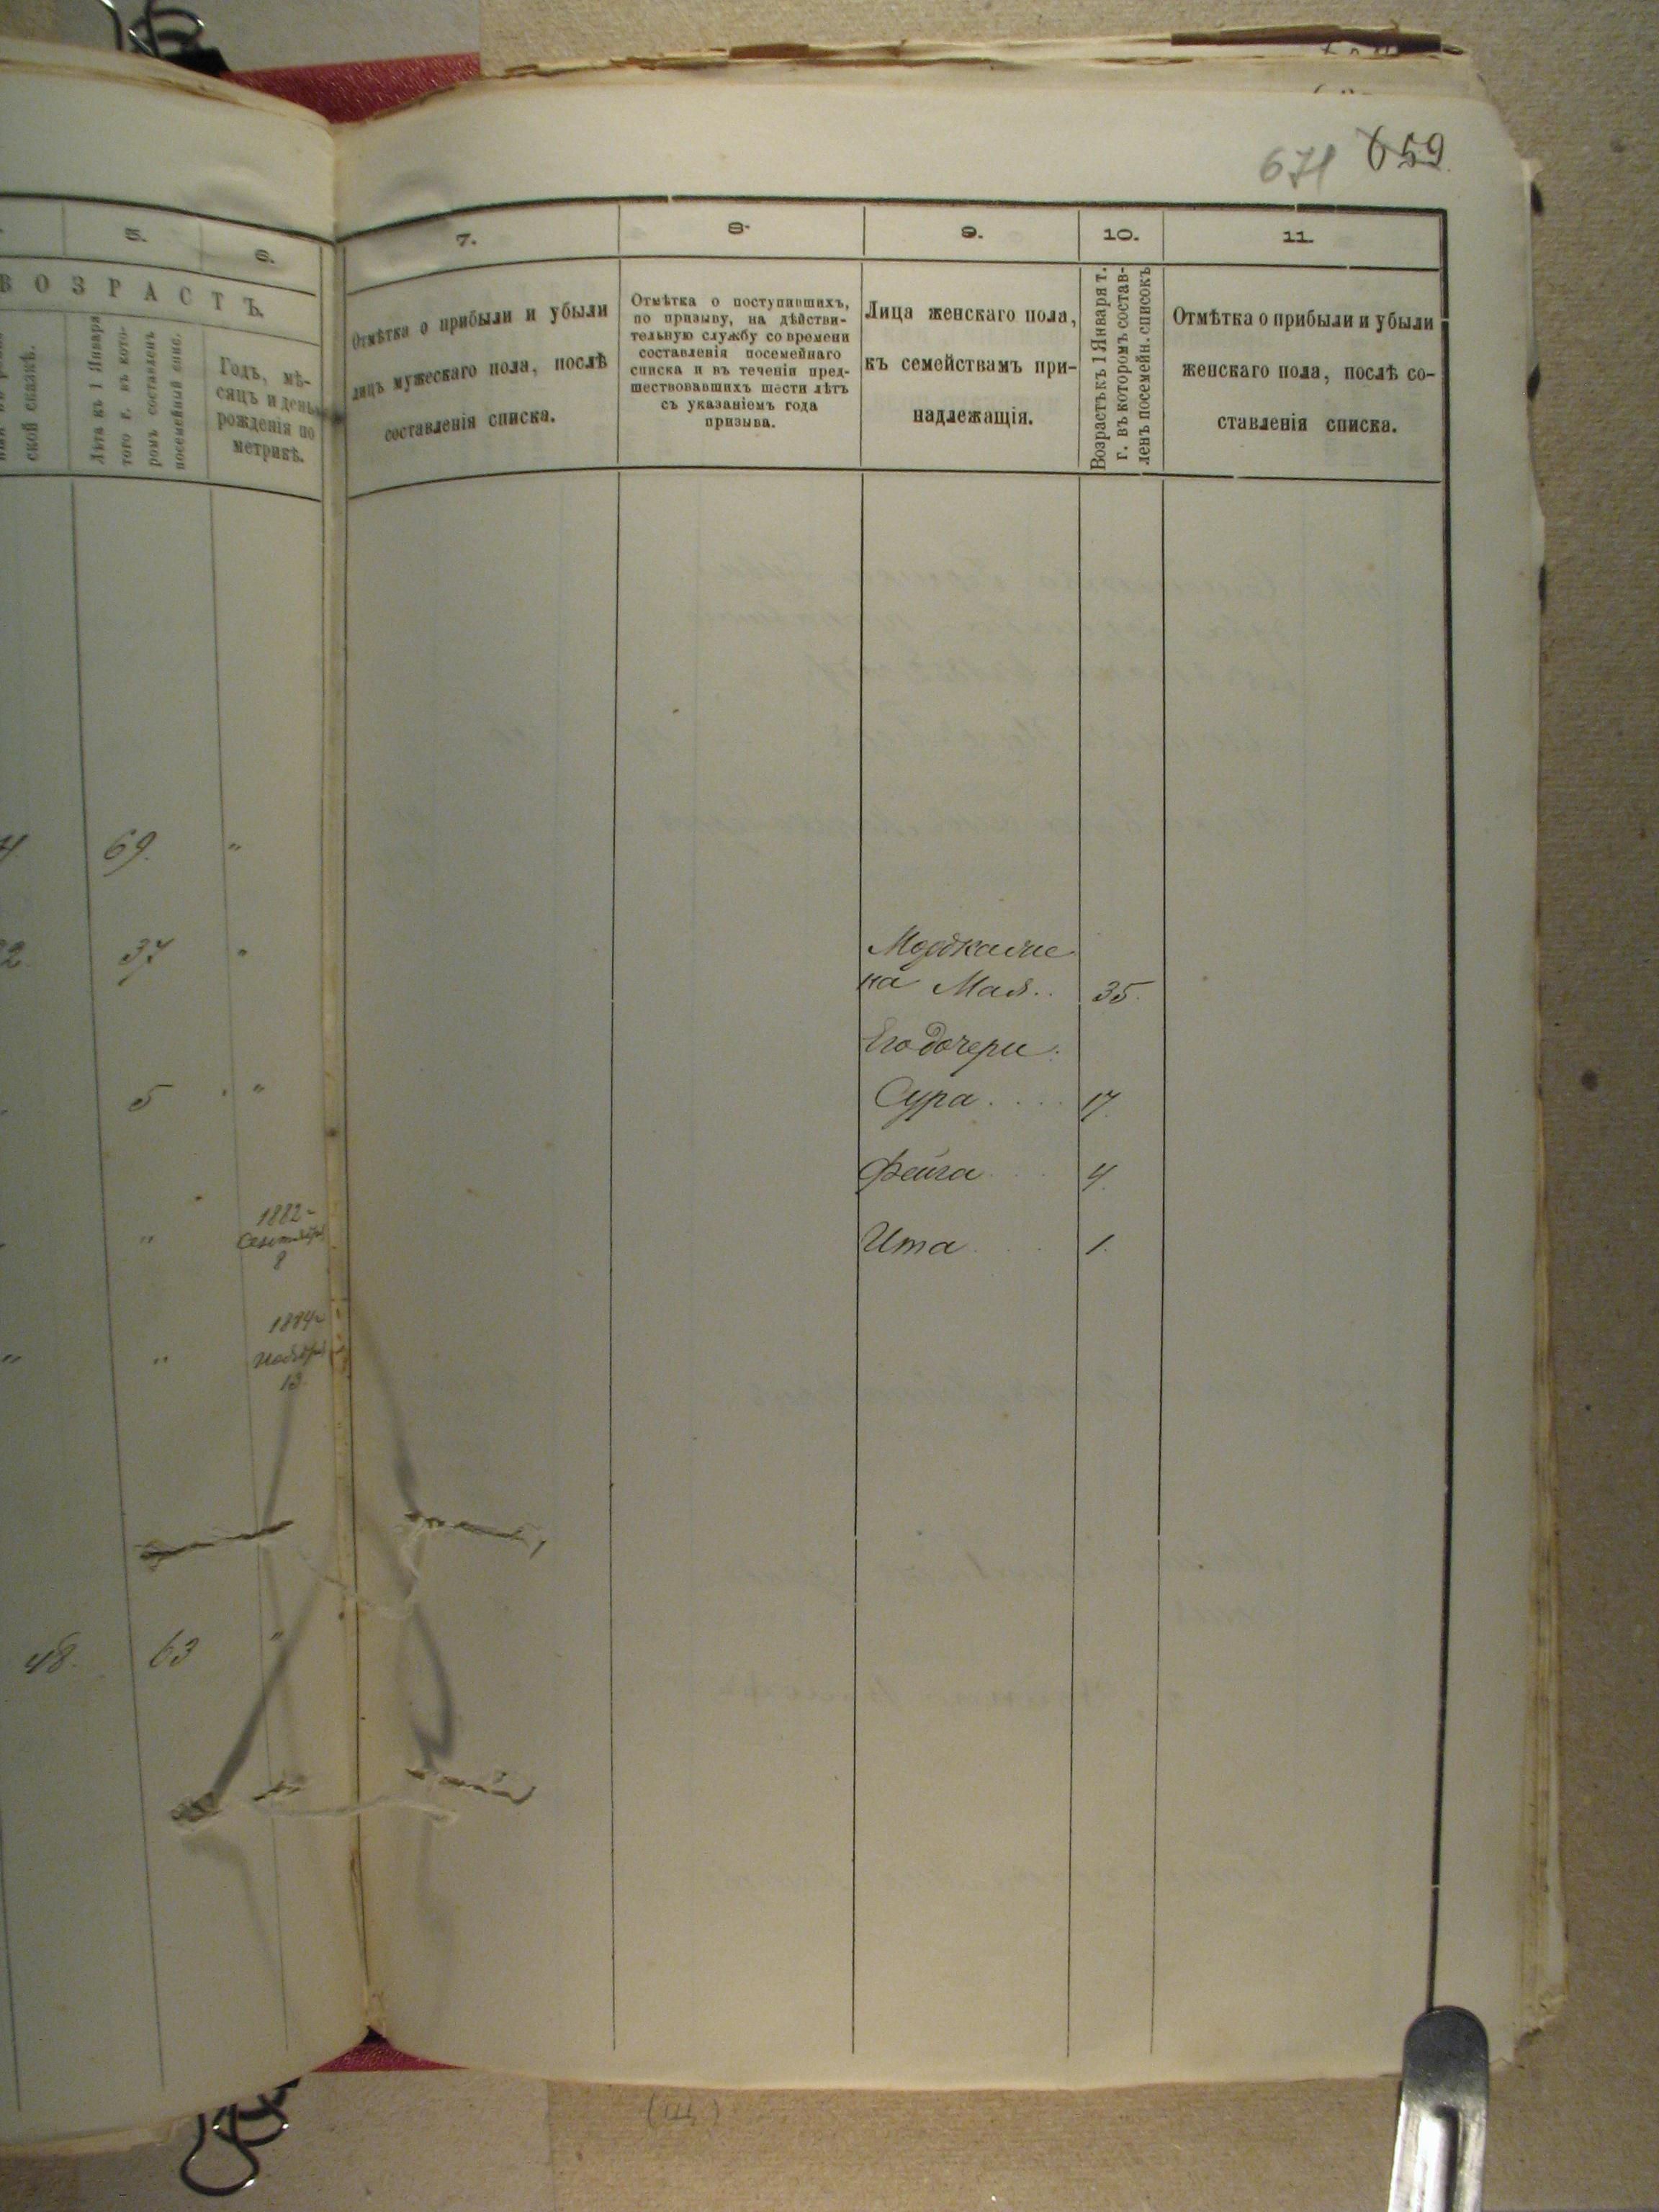 671 659
5.
6.
ВОЗРАСТЪ.
ской сказкѣ.
Лѣта къ 1 Января
того г. въ кото-
ромъ составленъ
посемейный спис.
Годъ, мѣ-
сяцъ и день
рожденія по
метрикѣ.
7.
Отмѣтка о прибыли и убыли
лицъ мужескаго пола, послѣ
составленія списка.
8.
Отмѣтка о поступившихъ,
по призыву, на дѣйстви-
тельную службу со времени
составленія посемейнаго
списка и въ теченіи пред-
шествовавшихъ шести лѣтъ
съ указаніемъ года
призыва.
9.
Лица женскаго пола,
къ семействамъ при-
надлежащія.
10.
Возрастъ къ 1 Января т.
г. въ которомъ состав-
ленъ посемейн. списокъ
11.
Отмѣтка о прибыли и убыли
женскаго пола, послѣ со-
ставленія списка.
69. "
37 "
на Мая.. 35.
5 "
Его дочери:
Сура.... 17.
Фейга... 4.
" 1882-
Сентября
8
Ита... 1.
" " 1884-
Ноября
13
48. 63 "